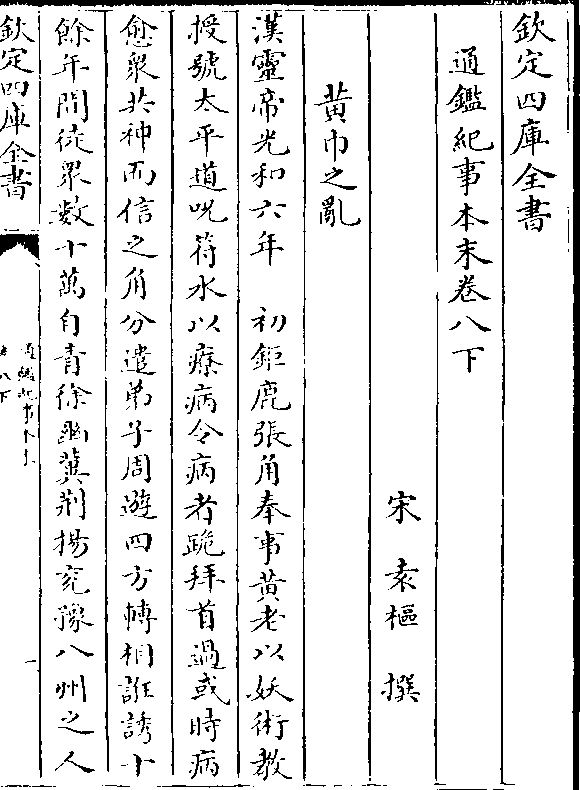 欽定四庫全書
通鑑紀事本末卷八下
宋 袁樞 撰
黄巾之亂
漢靈帝光和六年 初鉅鹿張角奉事黄老以妖術教
授號太平道呪符水以療病令病者跪拜首過或時病
愈衆共神而信之角分遣弟子周遊四方轉相誑誘十
餘年間徒衆數十萬自青徐幽冀荆揚兖豫八州之人
欽定四庫全書
通鑑紀事本末
卷八下
一